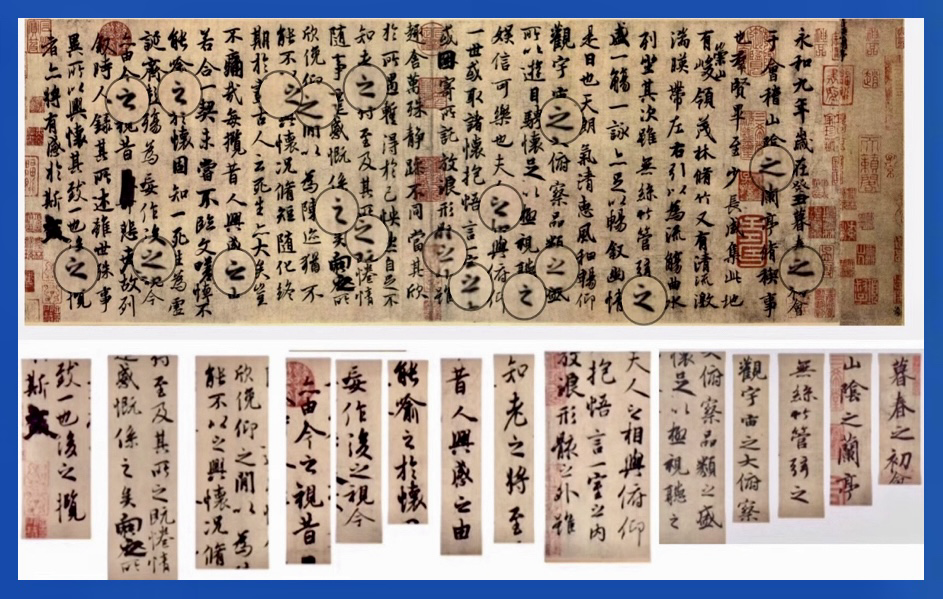 永和九年歲在癸丑暮春之初會
于會稽山陰之蘭亭脩稧事
也羣賢畢至少長咸集此地
有崇山峻領茂林脩竹又有清流激
湍暎帶左右引以為流觴曲水
列坐其次雖無絲竹管弦之
盛一觴一詠亦足以暢叙幽情
是日也天朗氣清惠風和暢仰
觀宇宙之大俯察品類之盛
所以遊目騁懷足以極視聽之
娛信可樂也夫人之相與俯仰
一世或取諸懷抱悟言一室之內
或因寄所託放浪形骸之外雖
趣舍萬殊静躁不同當其欣
於所遇蹔得於己怏然自足不
知老之將至及其所之既惓情
隨事遷感慨係之矣向之所
欣俛仰之閒以為陳迹猶不
能不以之興懷況脩短隨化終
期於盡古人云死生亦大矣豈
不痛哉每攬昔人興感之由
若合一契未嘗不臨文嗟悼不
能喻之於懷固知一死生為虛
誕齊彭殤為妄作後之視今
亦由今之視昔悲夫故列
叙時人錄其所述雖世殊事
異所以興懷其致一也後之攬
者亦將有感於斯文
暮春之初會
山陰之蘭亭
無絲竹管弦之
觀宇宙之大俯察
俯察品類之盛
懷足以極視聽之
夫人之相與俯仰
抱悟言一室之內
放浪形骸之外雖
知老之將至
昔人興感之由
能喻之於懷
妄作後之視今
亦由今之視昔
欣俛仰之閒以為
能不以之興懷況脩
將至及其所之既惓情
感慨係之矣向之所
致一也後之攬
斯文